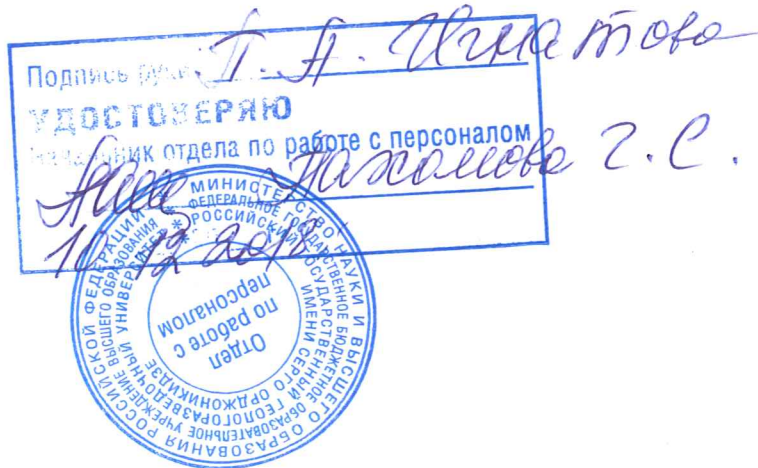 Подпись руки П. А. Игнатова
УДОСТОВЕРЯЮ
Начальник отдела по работе с персоналом
Пахомова Г. С.
10 12 2018
МИНИСТЕРСТВО НАУКИ И ВЫСШЕГО ОБРАЗОВАНИЯ РОССИЙСКОЙ ФЕДЕРАЦИИ
ФЕДЕРАЛЬНОЕ ГОСУДАРСТВЕННОЕ БЮДЖЕТНОЕ ОБРАЗОВАТЕЛЬНОЕ УЧРЕЖДЕНИЕ ВЫСШЕГО ОБРАЗОВАНИЯ
РОССИЙСКИЙ ГОСУДАРСТВЕННЫЙ ГЕОЛОГОРАЗВЕДОЧНЫЙ УНИВЕРСИТЕТ
ИМЕНИ СЕРГО ОРДЖОНИКИДЗЕ
Отдел
по работе с
персоналом